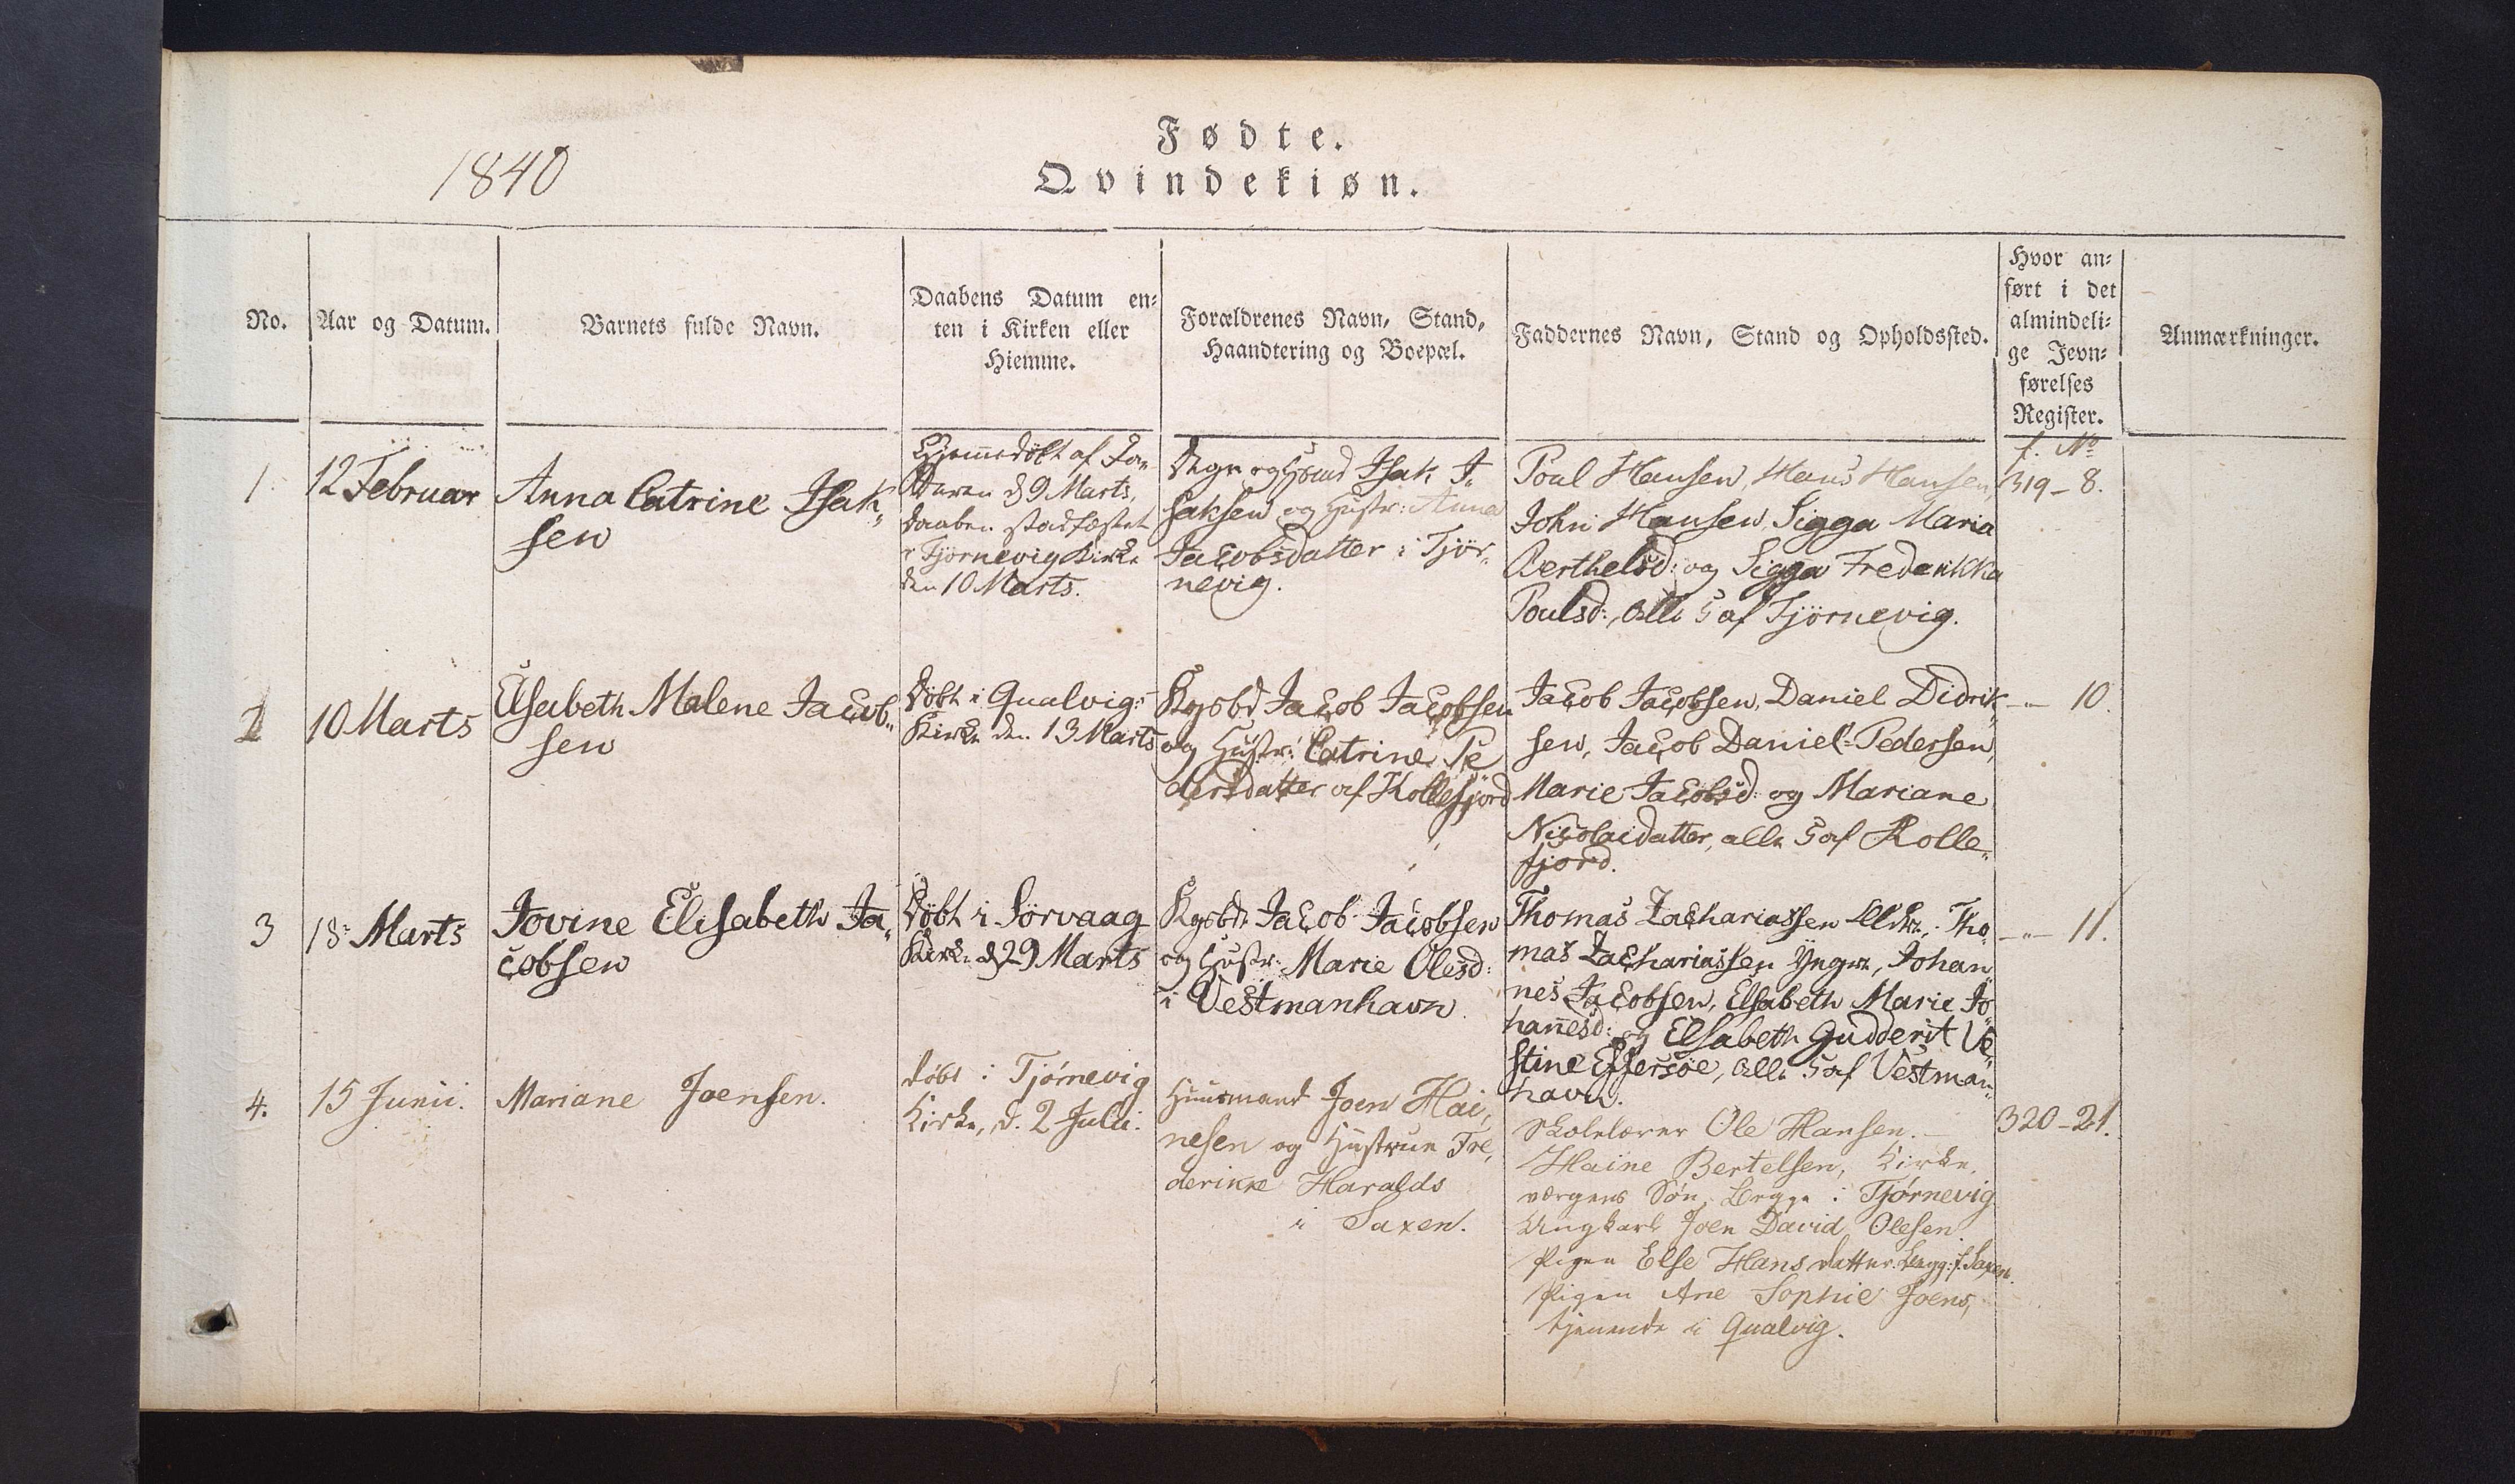 Fødte.
Qvindekiøn.
1840
No.
Aar og Datum.
Barnets fulde Navn.
Daabens Datum en-
ten i Kirken eller
Hiemme.
Forældrenes Navn, Stand,
Haandtering og Boepæl.
Faddernes Navn, Stand og Opholdssted.
Hvor an-
ført i det
almindeli-
ge Jevn-
førelses
Register.
Anmærkninger.
1
12 Februar
Anna Catrine Isak„
sen
Hjemmedöbt af Fa„
deren d 9 Marts,
Daaben stadfæstet
i Tjörnevig Kirke
den 10 Marts.
Degn og Isak I„
saksen og Hustr: Anna
Jacobsdatter i Tjör„
nevig.
Poul Hansen, Hans Hansen,
John Hansen, Sigga Maria
Berthelsd: og Sigga Frederikka
Poulsd:, alle 5 af Tjörnevig.
f. No
319 - 8.
2
10 Marts
Elsabeth Malene Jacob„
sen
Döbt i Qualvig
Kirke den 13 Marts
Kgsbd Jacob Jacobsen
og Hustr: Catrine Pe
dersdatter af Kollefjord
Jacob Jacobsen, Daniel Didrik„
sen, Jacob Daniel Pedersen,
Marie Jacobsd: og Mariane
Nicolaidatter, alle 5 af Kolle„
fjord.
-„- 10.
3
18 Marts
Jovine Elisabeth Ja„
cobsen
Döbt i Sörvaag
Kirke d 29 Marts
Kgsbd Jacob Jacobsen
og Hustr: Marie Olesd:
i Vestmanhavn.
Thomas Zachariassen Ældre, Tho„
mas Zachariassen Yngre, Johan„
nes Jacobsen, Elsabeth Marie Jo„
hannesd: og Elsabeth Gudderit Ve„
stine Effersöe, alle 5 af Vestman„
havn.
-„- 11.
4.
15 Junii.
Mariane Joensen.
döbt i Tjørnevig
Kirke, d. 2 Julii.
Huusmand Joen Hai„
nesen og Hustrue Fre„
derikke Haralds
i Saxen.
Skolelærer Ole Hansen.
Haine Bertelsen, Kirke„
værgens Søn, Begge i Tjørnevig
Ungkarl Joen David Olesen.
Pigen Else Hansdatter. Begge f. Saxen.
Pigen Ane Sophie Joens,
tjenende i Qualvig.
320 - 21.